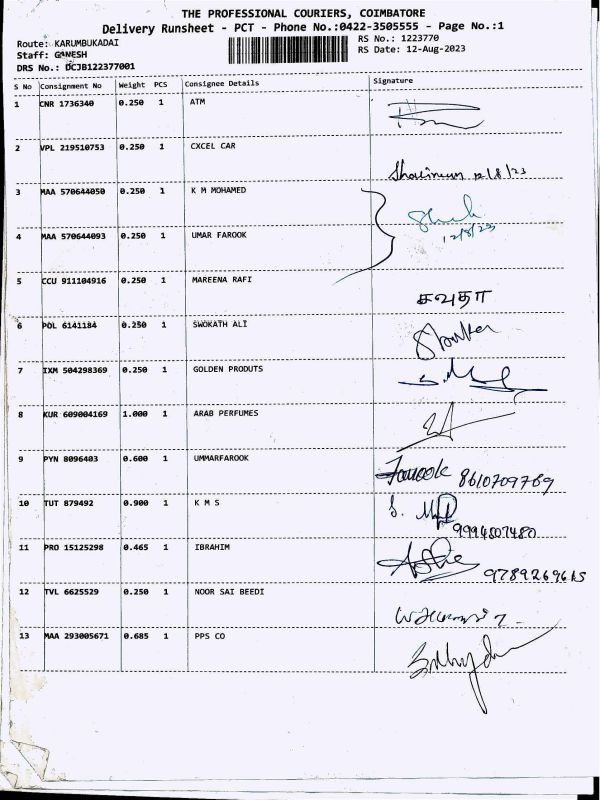 THE PROFESSIONAL COURIERS, COIMBATORE
Delivery Runsheet - PCT - Phone No.:0422-3505555 - Page No.:1
Route: KARUMBUKADAI RS No.: 1223770
Staff: GANESH RS Date: 12-Aug-2023
DRS No.: DCJB122377001
S No Consignment No Weight PCS Consignee Details Signature
1 CNR 1736340 0.250 1 ATM
2 VPL 219510753 0.250 1 CXCEL CAR
12/8/23
3 MAA 570644050 0.250 1 K M MOHAMED
12/8/23
4 MAA 570644093 0.250 1 UMAR FAROOK
5 CCU 911104916 0.250 1 MAREENA RAFI
6 POL 6141184 0.250 1 SWOKATH ALI
7 IXM 504298369 0.250 1 GOLDEN PRODUTS
8 KUR 609004169 1.000 1 ARAB PERFUMES
9 PYN 8096403 0.600 1 UMMARFAROOK
Farook 8610709769
10 TUT 879492 0.900 1 K M S
9994507480
11 PRO 15125298 0.465 1 IBRAHIM
12 TVL 6625529 0.250 1 NOOR SAI BEEDI
13 MAA 293005671 0.685 1 PPS CO